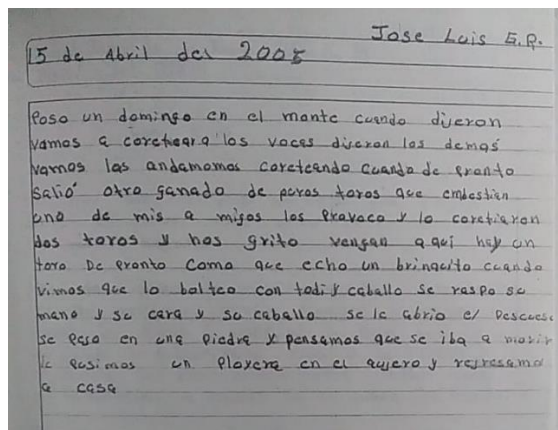 Jose Luis G.R.
15 de Abril del 2005
Poso un domingo en el monte cuando dijeron
vamos a coretear a los vacas dijeron los demas
vamos las andamomos coreteando cuando de pronto
salió otro ganado de puros toros que embestian
uno de mis a migos los provoco y lo coretiaron
dos toros y nos grito vengan a qui hay un
toro De pronto como que echo un brinquito cuando
vimos que lo bolteo con todi y caballo se raspo su
mano y su cara y su caballo se le abrio el Pescuese
se pego en una piedra y pensamos que se iba a morir
le pusimos un playera en el aujero y regresamo
a casa